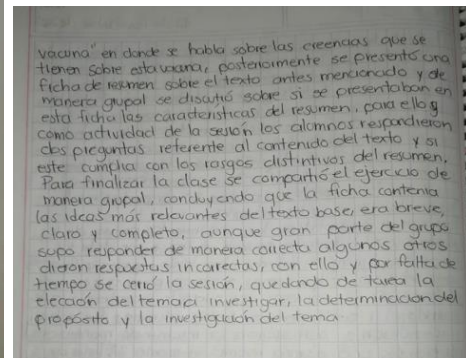 vacuna" en donde se habla sobre las creencias que se
tienen sobre esta vacuna, posteriormente se presentó una
ficha de resmen sobre el texto antes mencionado y de
manera grupal se disutió sobre si se presentaban en
esta ficha las caracteristicas del resumen, para ello
como actividad de la sesión los alumnos respondieron
dos preguntas referente al contenido del texto y si
este cumplia con los rasgos distintivos del resumen,
Para finalizar la clase se compartió el ejercicio de
manera grupal, concluyendo que la ficha contenia
las ideas más relevantes del texto base, era breve,
claro y completo, aunque gran parte del grupo
supo responder de manera correcta algunos otros
dieron respuestas incorrectas, con ello y por falta de
tiempo se cerró la sesión, quedando de tarea la
elección del tema a investigar, la determinación del
propósito y la investigación del tema.